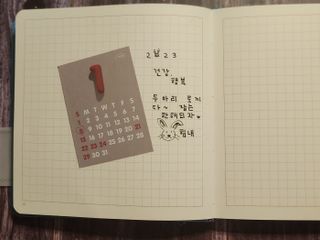 1
S M T W T F S
1 2 3 4 5 6 7
8 9 10 11 12 13 14
15 16 17 18 19 20 21
22 23 24 25 26 27 28
29 30 31
2023
건강,
행복
두마리 토끼
다~ 잡는
한해되자♥
힘내